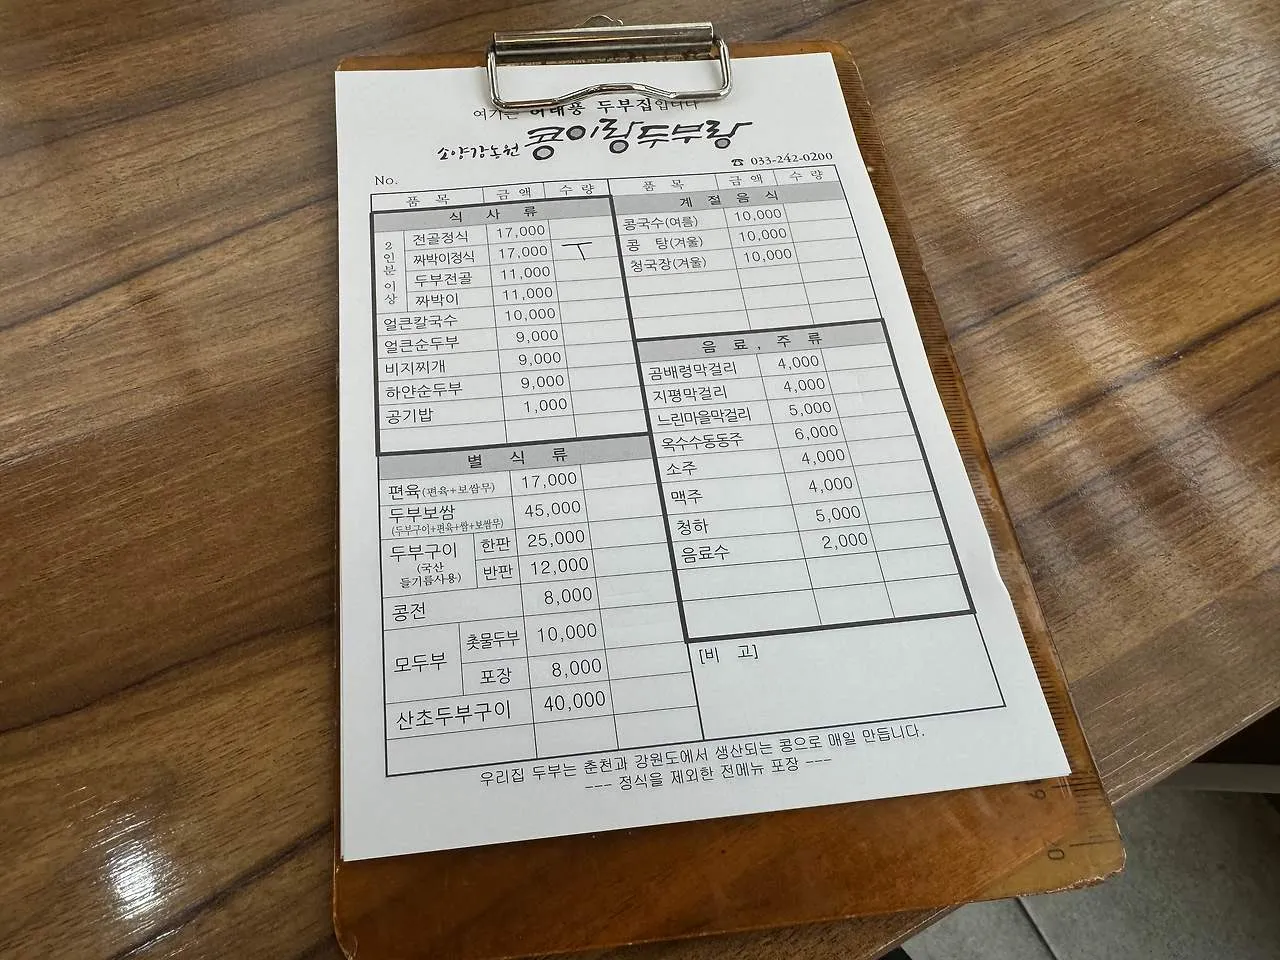 여기는 두부집입니다
소양강농원 콩이랑두부랑
☎ 033-242-0200
No.
품 목 금 액 수 량
식 사 류
2인분 이상
전골정식 17,000
짜박이정식 17,000 ㅜ
두부전골 11,000
짜박이 11,000
얼큰칼국수 10,000
얼큰순두부 9,000
비지찌개 9,000
하얀순두부 9,000
공기밥 1,000
별 식 류
편육(편육+보쌈무) 17,000
두부보쌈 45,000
(두부구이+편육+쌈+보쌈무)
두부구이 한판 25,000
(국산
들기름사용) 반판 12,000
콩전 8,000
모두부 촛물두부 10,000
포장 8,000
산초두부구이 40,000
품 목 금 액 수 량
계 절 음 식
콩국수(여름) 10,000
콩 탕(겨울) 10,000
청국장(겨울) 10,000
음 료 , 주 류
곰배령막걸리 4,000
지평막걸리 4,000
느린마을막걸리 5,000
옥수수동동주 6,000
소주 4,000
맥주 4,000
청하 5,000
음료수 2,000
[비 고]
우리집 두부는 춘천과 강원도에서 생산되는 콩으로 매일 만듭니다.
--- 정식을 제외한 전메뉴 포장 ---